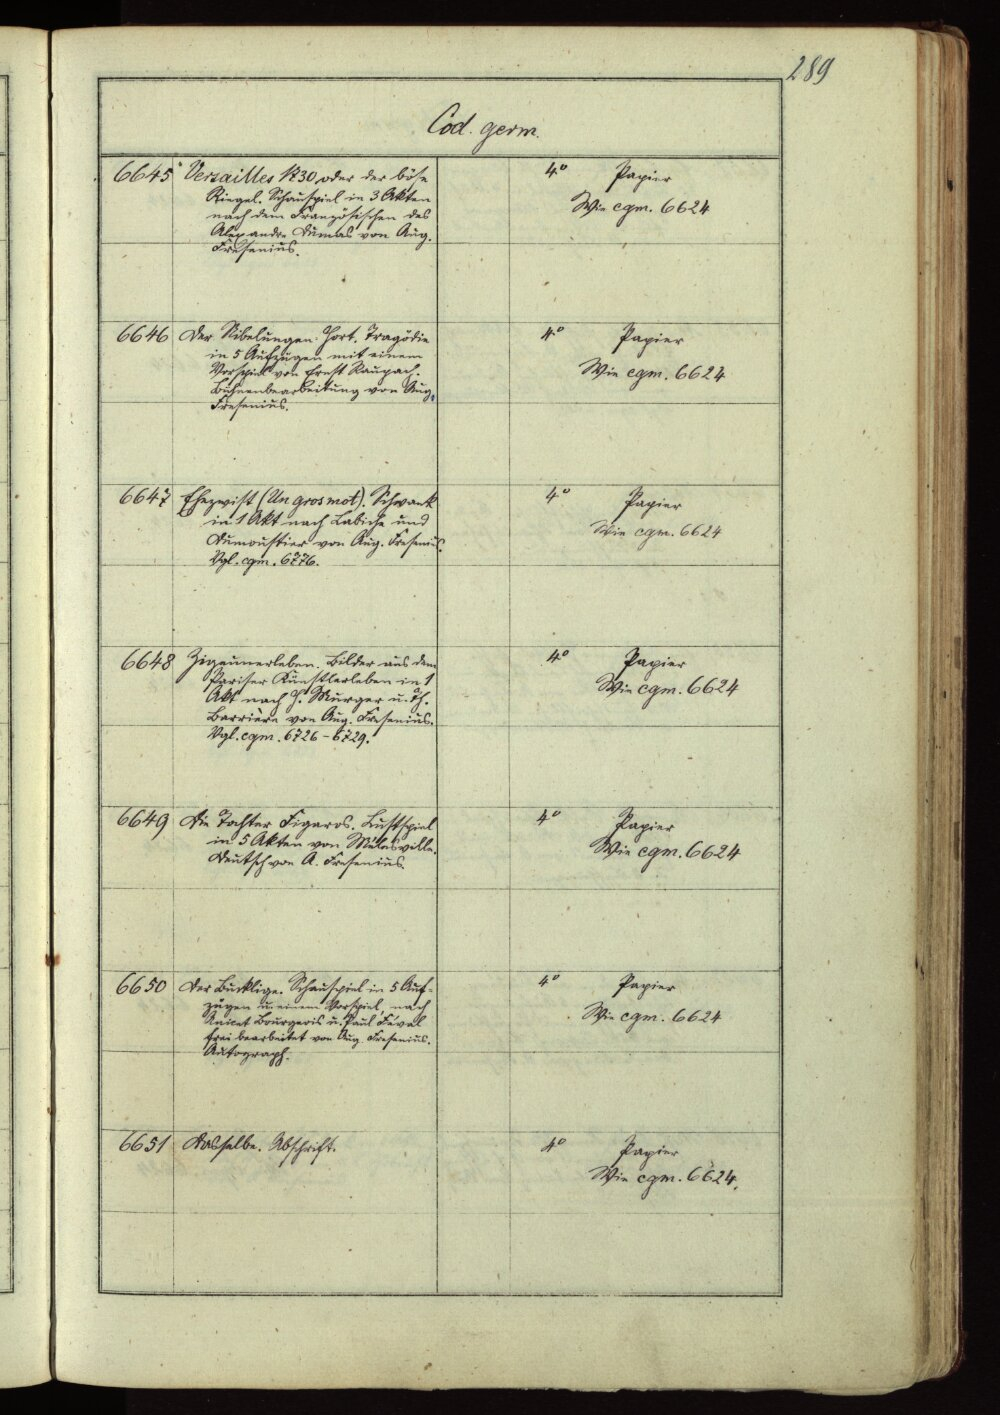 289
Cod. germ.
6645 Versailles 1730 oder der böse 4° Papier
Riegel. Schauspiel in 3 Akten Wie cgm. 6624
nach dem Französischen des
Alexandre Dumas von Aug.
Fresenius.
6646 Der Nibelungen Hort. Tragödie 4° Papier
in 5 Aufzügen mit einem Wie cgm. 6624
Vorspiel von Ernst Raupach.
Bühnenbearbeitung von Aug.
Fresenius.
6647 Ehezwist (Un gros mot). Schwank 4° Papier
in 1 Akt nach Labiche und Wie cgm. 6624
Dumoustier von Aug. Fresenius.
Vgl. cgm. 6776.
6648 Zigeunerleben. Bilder aus dem 4° Papier
Pariser Künstlerleben in 1 Wie cgm. 6624
Akt nach H. Murger u. Th.
Barrière von Aug. Fresenius.
Vgl. cgm. 6726-6729.
6649 Die Tochter Figaros. Lustspiel 4° Papier
in 5 Akten von Mélesville. Wie cgm. 6624
Deutsch von A. Fresenius.
6650 Der Bucklige. Schauspiel in 5 Auf- 4° Papier
zügen u. einem Vorspiel, nach Wie cgm. 6624
Anicet Bourgeois u. Paul Féval
frei bearbeitet von Aug. Fresenius.
Autograph.
6651 Dasselbe. Abschrift. 4° Papier
Wie cgm. 6624.